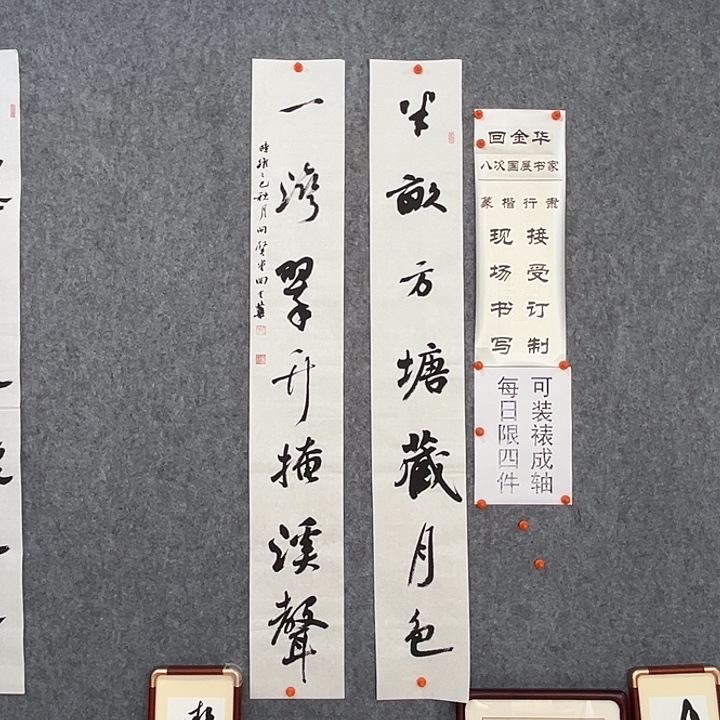 半畝方塘藏月色
一灣翠竹掩溪聲
時維乙巳秋月问賢堂回金華
回金华
八次国展书家
篆楷行隶
接受订制
现场书写
可装裱成轴
每日限四件